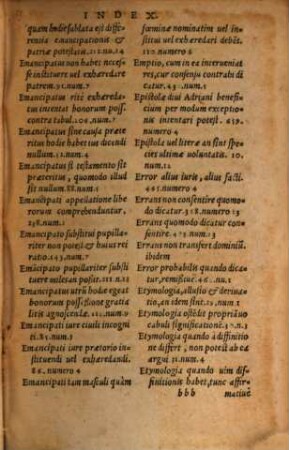 INDEX.
quam Imdiesublata est diffe
rentia emancipationis &
patriæ potestatis. 112.nu.14
Emancipatus non habet necesse
se instituere uel exhæredare
patrem. 35.num.7
Emancipatus rite exhæredatus
intentat bonorum possess.
contra tabul. 106.num.7
Emancipatus sine causa præte
ritus hodie habet ius dicendi
nullum. 12.num.4
Emancipatus si testamento sit
præteritus, quomodo illud
sit nullum. 28.num.1
Emancipati appellatione libe
rorum comprehenduntur,
258.num.1
Emancipato substitui pupilla
riter non potest & huius rei
ratio. 43.num.7
Emãcipato pupillariter substi
tuere miles an possit. 61.nu.5
Emancipatus iura hodie eget
bonorum possessione gratia
litis agnoscendæ. 21.num.5
Emancipati iure ciuili incogni
ti. 81.num.3
Emancipati iure prætorio in
stituendi uel exhæredandi.
86.numero 4
Emancipati tam masculi quàm
fœminæ nominatim uel in
stitui uel exhæredari debẽt.
120.numero 6
Emptio, cum in ea interueniat
res, cur consensu contrahi di
catur. 43.num.1
Epistolæ diui Adriani benefi
cium per modum exceptio
nis intentari potest. 639.
numero
Epistola uel literæ an sint spe
cies ultimæ uoluntatis. 10.
num.11
Error alius iuris, alius facti.
465.numero 1
Errans non consentire quomo
do dicatur. 328.numero 23
Errans quomodo dicatur con
sentire. 425.num.2
Errans non transfert dominiũ.
ibidem
Error probabilis quando dica
tur, remissiuè. 46.nu.4
Etymologia, allusio & deriua
tio, an idem sint. 25.num.1
Etymologia ostẽdit propriã uo
cabuli significationẽ. 17.n.3
Etymologia quando à diffinitio
ne differt, non potest ab ea ar
gui. 31.num.4
Etymologia quando uim dif
finitionis habet, tunc affir-
bbb matiuè